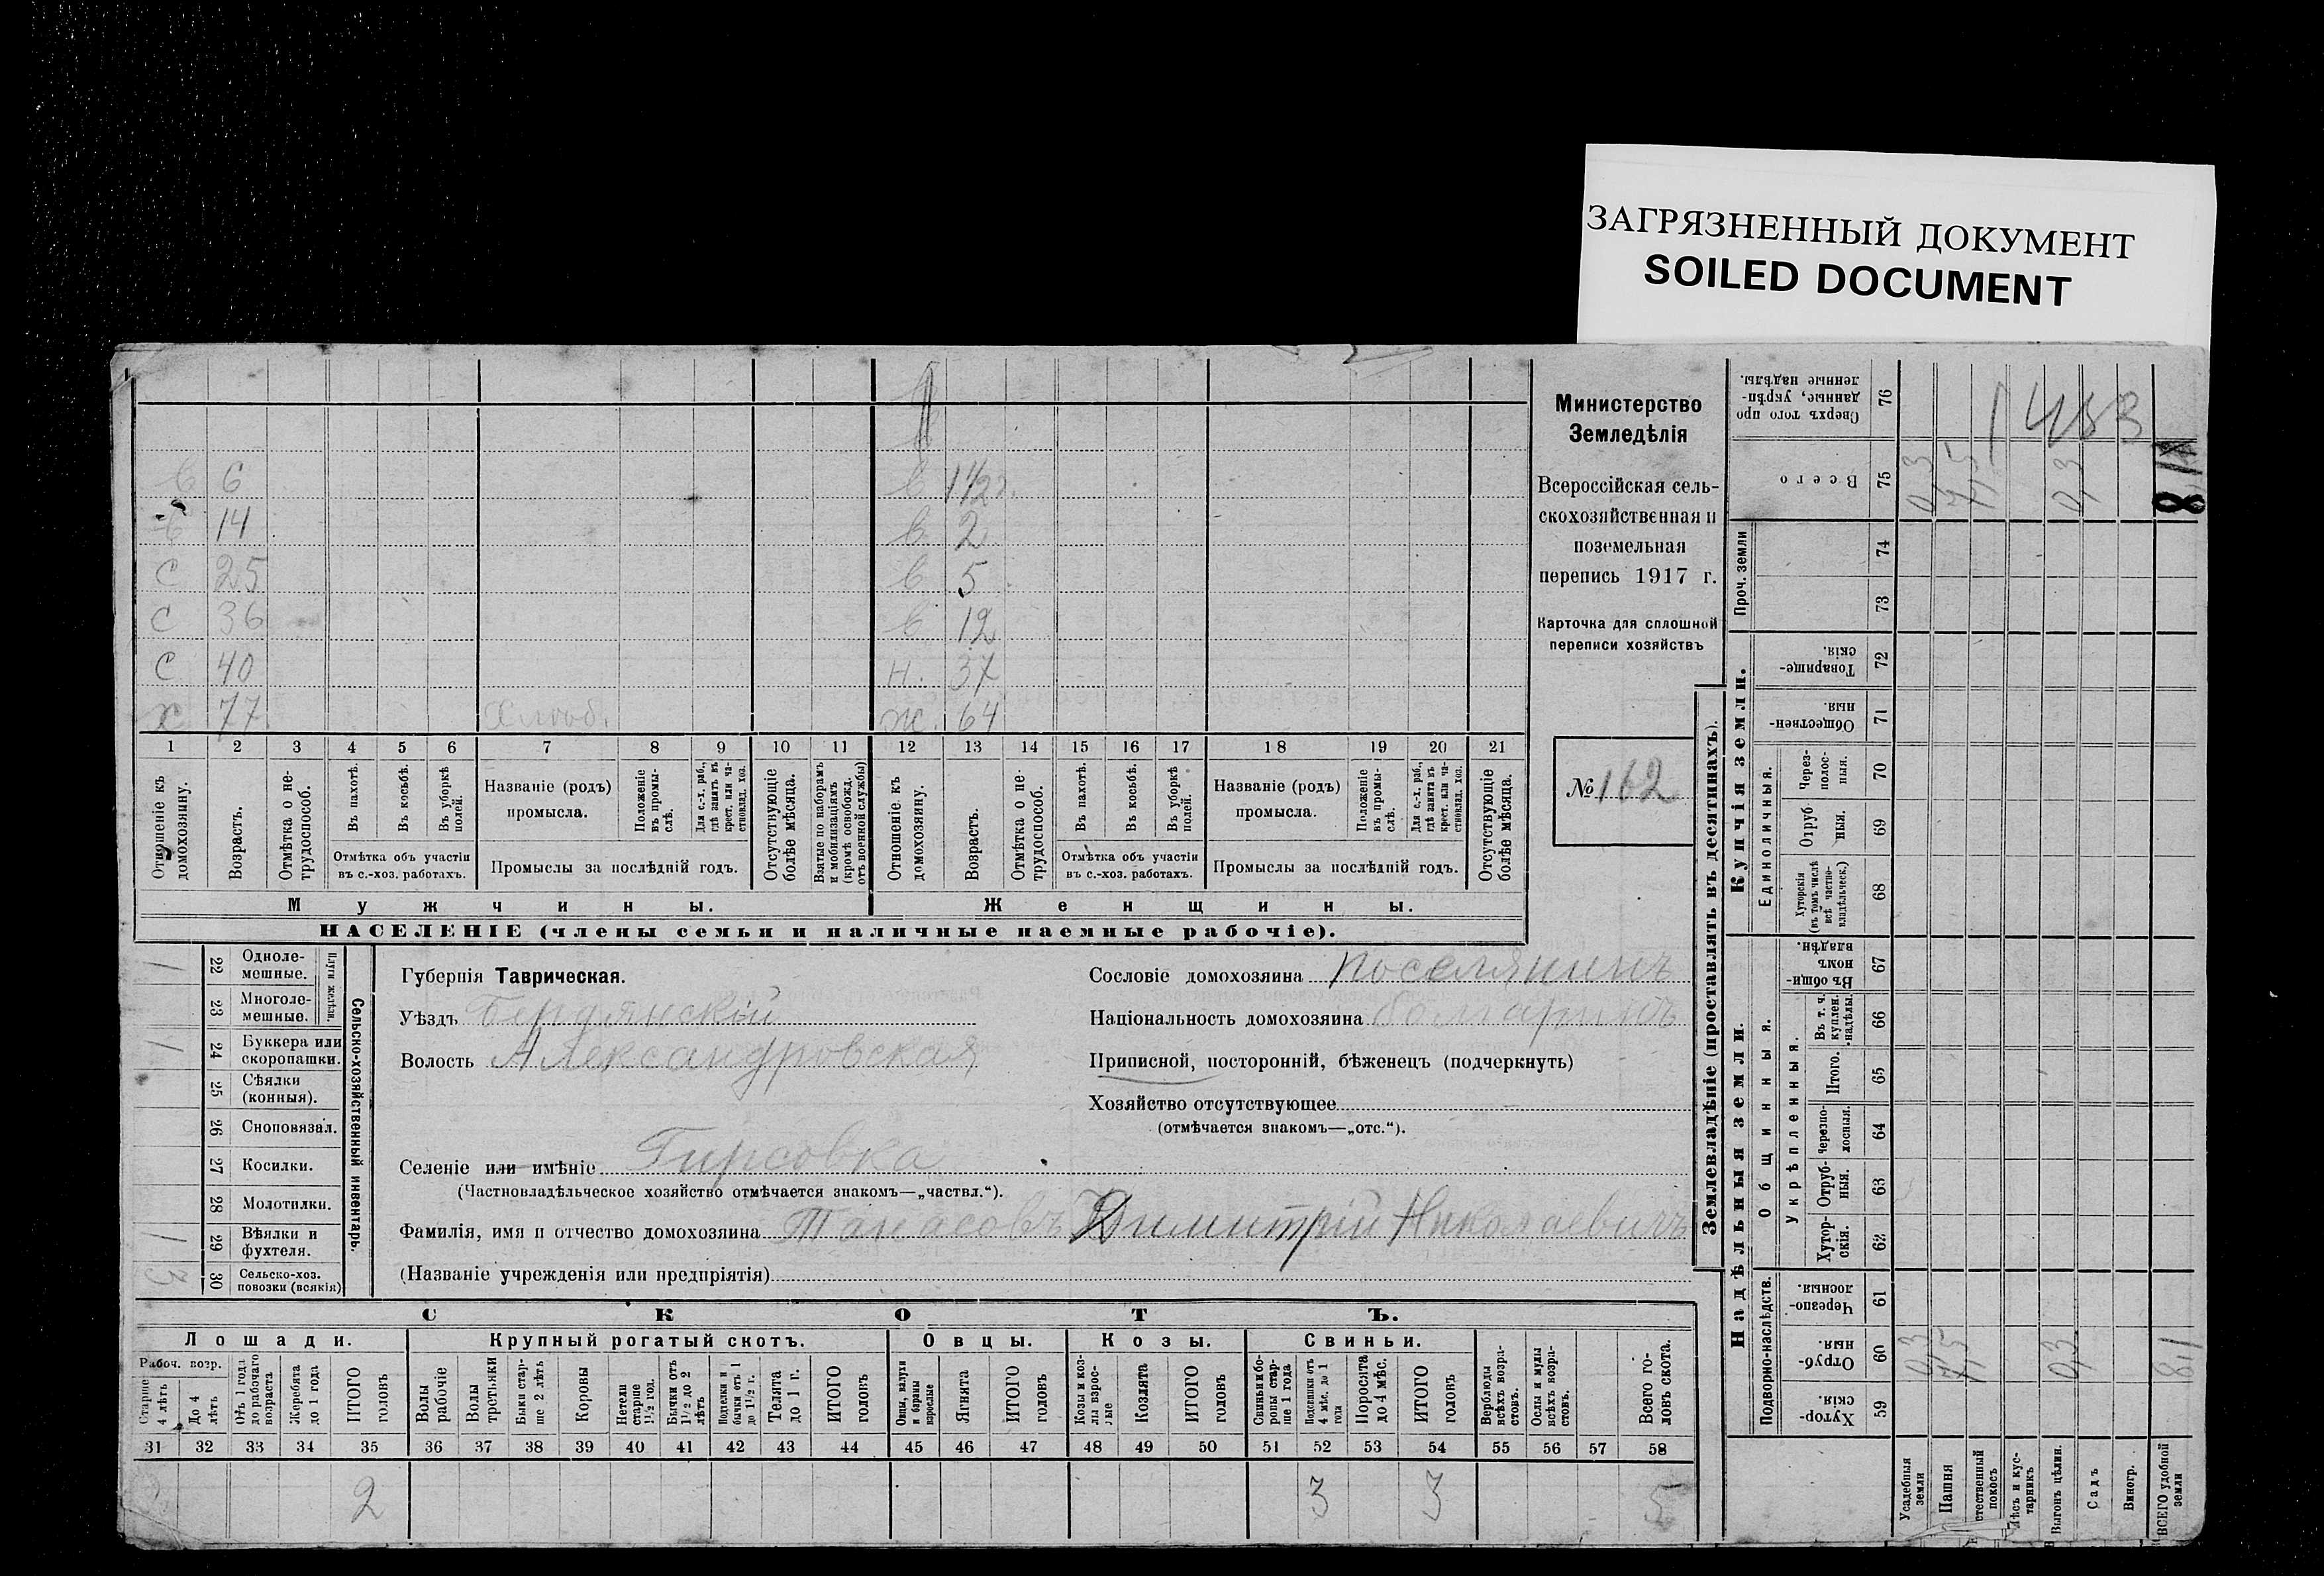 ЗАГРЯЗНЕННЫЙ ДОКУМЕНТ
SOILED DOCUMENT
в 6 в 1 1/2
в 14 в 2
с 25 в 5
с 36 в 12
с 40 н. 37
х 77 ж. 64
1 2 3 4 5 6 7 8 9 10 11 12 13 14 15 16 17 18 19 20 21
Отношеніе къ домохозяину.
Возрастъ.
Отмѣтка о не-трудоспособ.
Въ пахотѣ.
Въ косьбѣ.
Въ уборкѣ полей.
Отмѣтка объ участіи въ с.-хоз. работахъ.
Названіе (родъ) промысла.
Положеніе въ промы-слѣ.
Для с.-х. раб., гдѣ занятъ въ крест. или ча-стновлад. хоз.
Промыслы за послѣдній годъ.
Отсутствующіе болѣе мѣсяца.
Взятые по наборамъ и мобилизаціямъ (кромѣ освобожд. отъ военной службы)
Отношеніе къ домохозяину.
Возрастъ.
Отмѣтка о не-трудоспособ.
Въ пахотѣ.
Въ косьбѣ.
Въ уборкѣ полей.
Отмѣтка объ участіи въ с.-хоз. работахъ.
Названіе (родъ) промысла.
Положеніе въ промы-слѣ.
Для с.-х. раб., гдѣ занята въ крест. или ча-стновлад. хоз.
Промыслы за послѣдній годъ.
Отсутствующіе болѣе мѣсяца.
Мужчины. Женщины.
НАСЕЛЕНІЕ (члены семьи и наличные наемные рабочіе).
Министерство
Земледѣлія
Всероссійская сель-
скохозяйственная и
поземельная
перепись 1917 г.
Карточка для сплошной
переписи хозяйствъ
№ 162
Сельско-хозяйственный инвентарь.
Плуги желѣзн.
22 Одноле-мешные. 1
23 Многоле-мешные.
24 Буккера или скоропашки. 1
25 Сѣялки (конныя).
26 Сноповязал.
27 Косилки.
28 Молотилки.
29 Вѣялки и фухтеля. 1
30 Сельско-хоз. повозки (всякія) 3
Губернія Таврическая.
Уѣздъ Бердянскій
Волость Александровская
Сословіе домохозяина поселянинъ
Національность домохозяина болгаринъ
Приписной, посторонній, бѣженецъ (подчеркнуть)
Хозяйство отсутствующее
(отмѣчается знакомъ—„отс.“).
Селеніе или имѣніе Гирсовка
(Частновладѣльческое хозяйство отмѣчается знакомъ—„частвл.“).
Фамилія, имя и отчество домохозяина Танасовъ Димитрій Николаевичъ
(Названіе учрежденія или предпріятія)
СКОТЪ.
Лошади. Крупный рогатый скотъ. Овцы. Козы. Свиньи.
Рабоч. возр.
Старше 4 лѣтъ
До 4 лѣтъ
Отъ 1 года до рабочаго возраста
Жеребята до 1 года
ИТОГО головъ
Волы рабочіе
Волы третьяки
Быки стар-ше 2 лѣтъ
Коровы
Нетели старше 1 1/2 год.
Бычки отъ 1 1/2 до 2 лѣтъ
Подтелки и бычки отъ 1 до 1 1/2 г.
Телята до 1 г.
ИТОГО головъ
Овцы, валухи и бараны взрослые
Ягнята
ИТОГО головъ
Козы и коз-лы взрос-лые
Козлята
ИТОГО головъ
Свиньи и бо-ровы стар-ше 1 года
Подсвинки отъ 4 мѣс. до 1 года
Поросята до 4 мѣс.
ИТОГО головъ
Верблюды всѣхъ возра-стовъ.
Ослы и мулы всѣхъ возра-стовъ.
Всего го-ловъ скота.
31 32 33 34 35 36 37 38 39 40 41 42 43 44 45 46 47 48 49 50 51 52 53 54 55 56 57 58
2 3 3 5
Землевладѣніе (проставлять въ десятинахъ).
Надѣльныя земли. Купчія земли. Проч. земли
Подворно-наслѣдств.
Общинныя.
Укрѣпленныя.
Единоличныя.
Сверхъ того про данные, укрѣп-ленные надѣлы. 76 1483
Всего 75 0,3 7,5 0,3 8,1
74
73
Товарище-скія. 72
Обществен-ныя. 71
Через-полос-ныя. 70
Отруб-ныя. 69
Хуторскія (въ томъ числѣ всѣ частно-владѣльческ.) 68
Въ общи-номъ владѣн. 67
Въ т. ч. куплен. надѣлы. 66
Итого. 65
Черезпо-лосныя. 64
Отруб-ныя. 63
Хутор-скія. 62
Черезпо-лосныя. 61
Отруб-ныя. 60 0,3 7,5 0,3 8,1
Хутор-скія. 59
Усадебныя земли
Пашня
Естественный покосъ
Лѣсъ и кус-тарникъ
Выгонъ цѣлин.
Садъ
Виногр.
ВСЕГО удобной земли